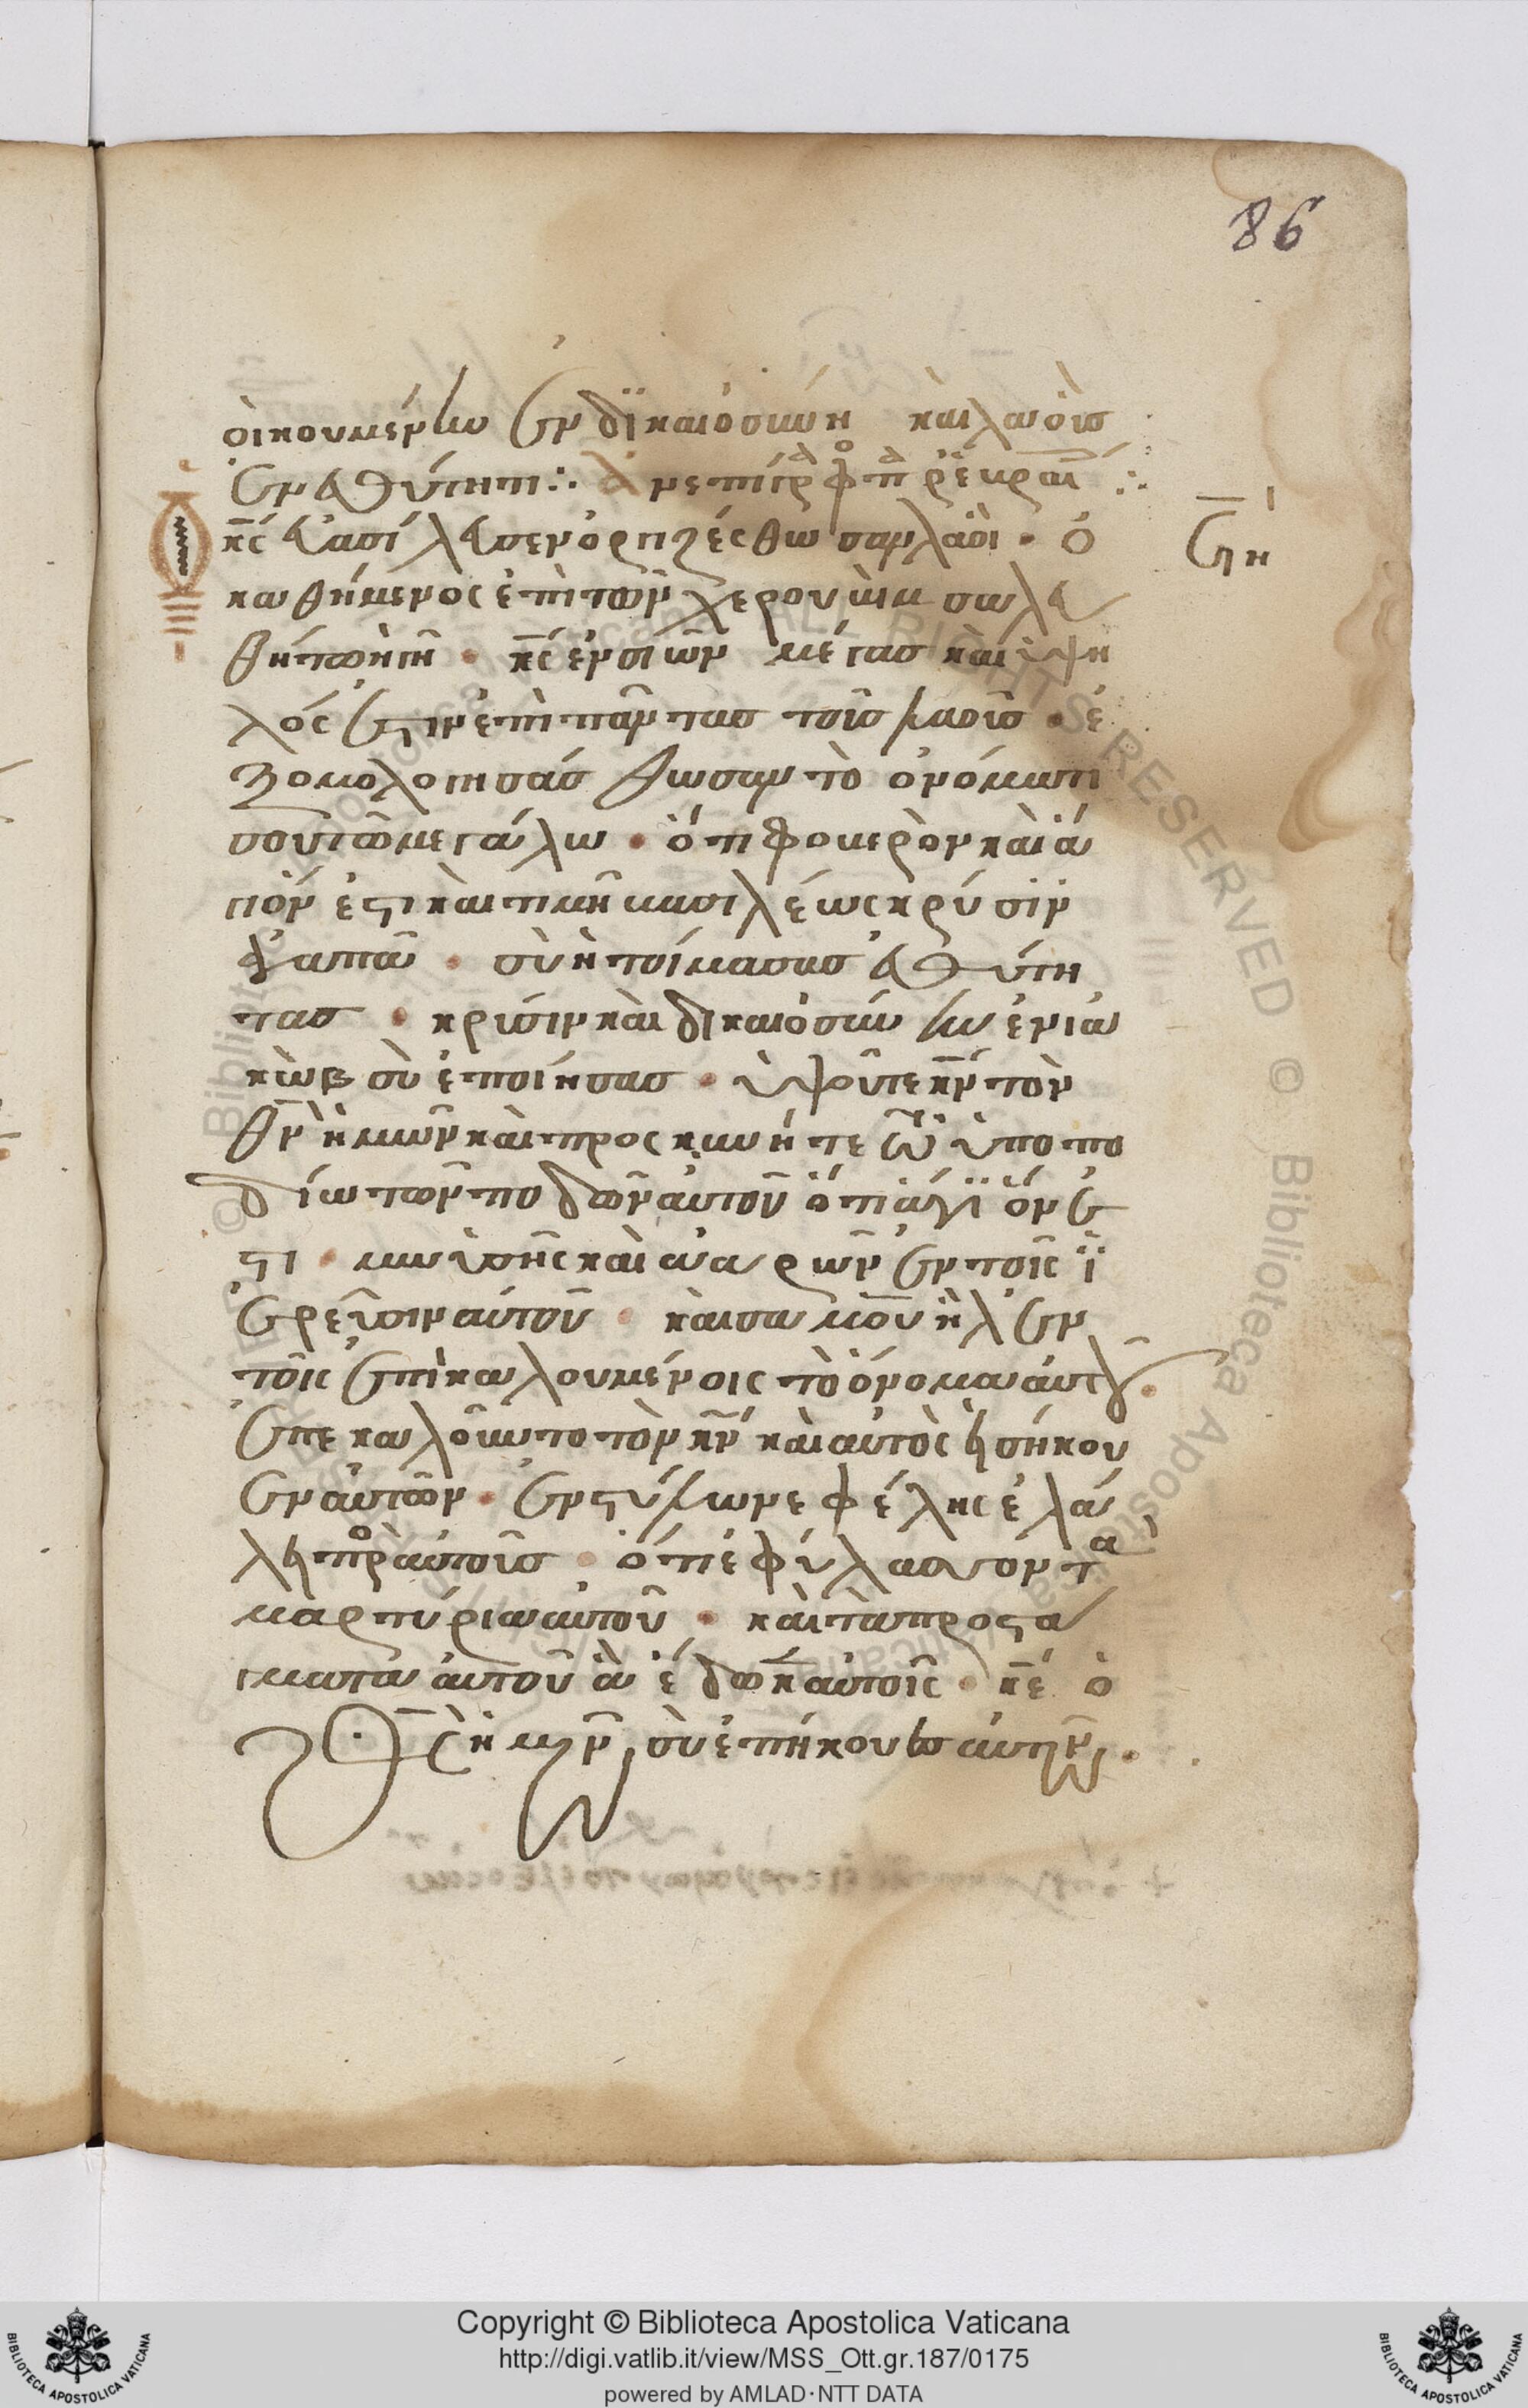 86
οἰκουμένην ἐν δϊκαιοσύνη καὶ λαοὺσ
ἐν εὐθύτητι :·
κς̅ ἐβασίλευσεν ὀργιζέσθωσαν λαοὶ · ὁ
καθήμενος ἐπὶ τῶν χερουβὶμ σαλευ
θήτω ἡ γῆ · κς̅ ἐν σιὼν μέγασ καὶ ὑψη
λός ἐστιν ἐπὶ πάντασ τοὺσ λαοὺσ · ἐ
ξομολογησάσθωσαν τὸ ὀνόματι
σου τῶ μεγάλω · ὅτι φοβερὸν καὶ ἅ
γιόν ἐστι καὶ τιμὴ βασιλέως κρύσιν
ἀγαπᾶ · σὺ ἡτοίμασασ εὐθύτη
τασ · κρίσιν καὶ δικαιοσύνην ἐν ια
κὼβ σὺ ἐποίησασ · ὑψοῦτε κν̅ τὸν
θν̅ ἡμῶν καὶ προσκυνήτε τῶ ὑποπο
δίω τῶν ποδῶν αὐτοῦ ὅτι ἅγϊόν ἐ
στι · μωυσῆς καὶ ἀαρὼν ἐν τοῖς ϊ
ερεῦσιν αὐτοῦ · καὶ σαμουὴλ ἐν
τοῖς ἐπικαλουμένοις τὸ ὄνομα αὐτοῦ ·
ἐπεκαλοῦντο τὸν κν̅ καὶ αὐτὸς εἰσήκου
εν αὐτῶν · ἐν στύλω νεφέλης ἐλά
λει πρὸς αὐτοὺσ · ὅτι ἐφύλασσον τὰ
μαρτύρια αὐτοῦ · καὶ τὰ προστά
γματα αὐτοῦ ἃ ἔδωκεν αὐτοῖς · κε̅ ὁ
θς̅ ἡμῶν, σὺ ἐπήκουεσ αὐτῶν ·
Copyright © Biblioteca Apostolica Vaticana
http://digi.vatlib.it/view/MSS_Ott.gr.187/0175
powered by AMLAD·NTT DATA